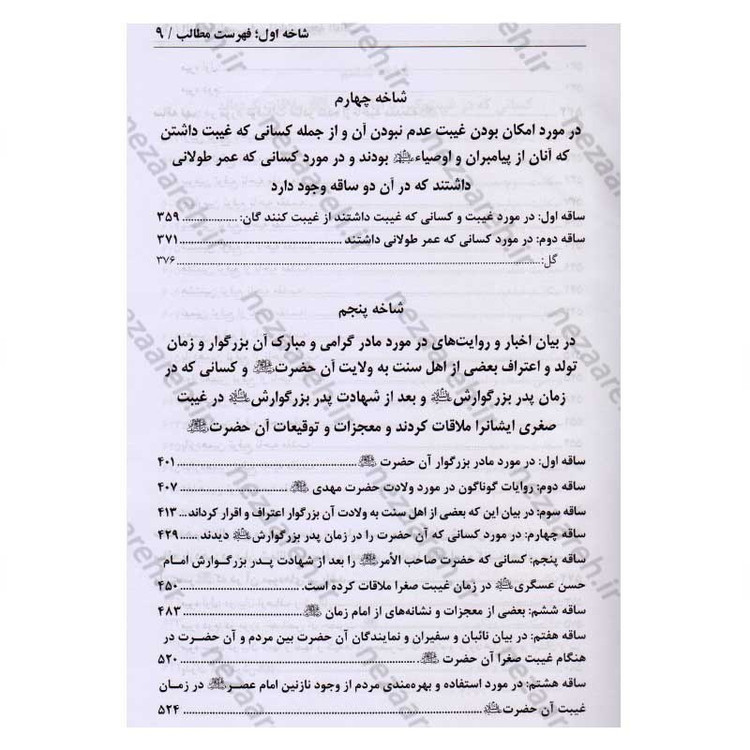 شاخه اول؛ فهرست مطالب / ۹
شاخه چهارم
در مورد امکان بودن غیبت عدم نبودن آن و از جمله کسانی که غیبت داشتن
که آنان از پیامبران و اوصیاء بودند و در مورد کسانی که عمر طولانی
داشتند که در آن دو ساقه وجود دارد
ساقه اول: در مورد غیبت و کسانی که غیبت داشتند از غیبت کنند گان: .................. ۳۵۹
ساقه دوم: در مورد کسانی که عمر طولانی داشتند ............................................ ۳۷۱
گل: .................................................................................................... ۳۷۶
شاخه پنجم
در بیان اخبار و روایت‌های در مورد مادر گرامی و مبارک آن بزرگوار و زمان
تولد و اعتراف بعضی از اهل سنت به ولایت آن حضرت و کسانی که در
زمان پدر بزرگوارش و بعد از شهادت پدر بزرگوارش در غیبت
صغری ایشانرا ملاقات کردند و معجزات و توقیعات آن حضرت
ساقه اول: در مورد مادر بزرگوار آن حضرت ................................................ ۴۰۱
ساقه دوم: روایات گوناگون در مورد ولادت حضرت مهدی ........................... ۴۰۷
ساقه سوم: در بیان این که بعضی از اهل سنت به ولادت آن بزرگوار اعتراف و اقرار کرداند ... ۴۱۳
ساقه چهارم: در مورد کسانی که آن حضرت را در زمان پدر بزرگوارش دیدند ...... ۴۲۹
ساقه پنجم: کسانی که حضرت صاحب الأمر را بعد از شهادت پدر بزرگوارش امام
حسن عسگری در زمان غیبت صغرا ملاقات کرده است. .............................. ۴۵۰
ساقه ششم: بعضی از معجزات و نشانه‌های از امام زمان ................................ ۴۸۳
ساقه هفتم: در بیان نائبان و سفیران و نمایندگان آن حضرت بین مردم و آن حضرت در
هنگام غیبت صغرا آن حضرت ............................................................ ۵۲۰
ساقه هشتم: در مورد استفاده و بهره‌مندی مردم از وجود نازنین امام عصر در زمان
غیبت آن حضرت ............................................................................ ۵۲۴
nezaareh.ir